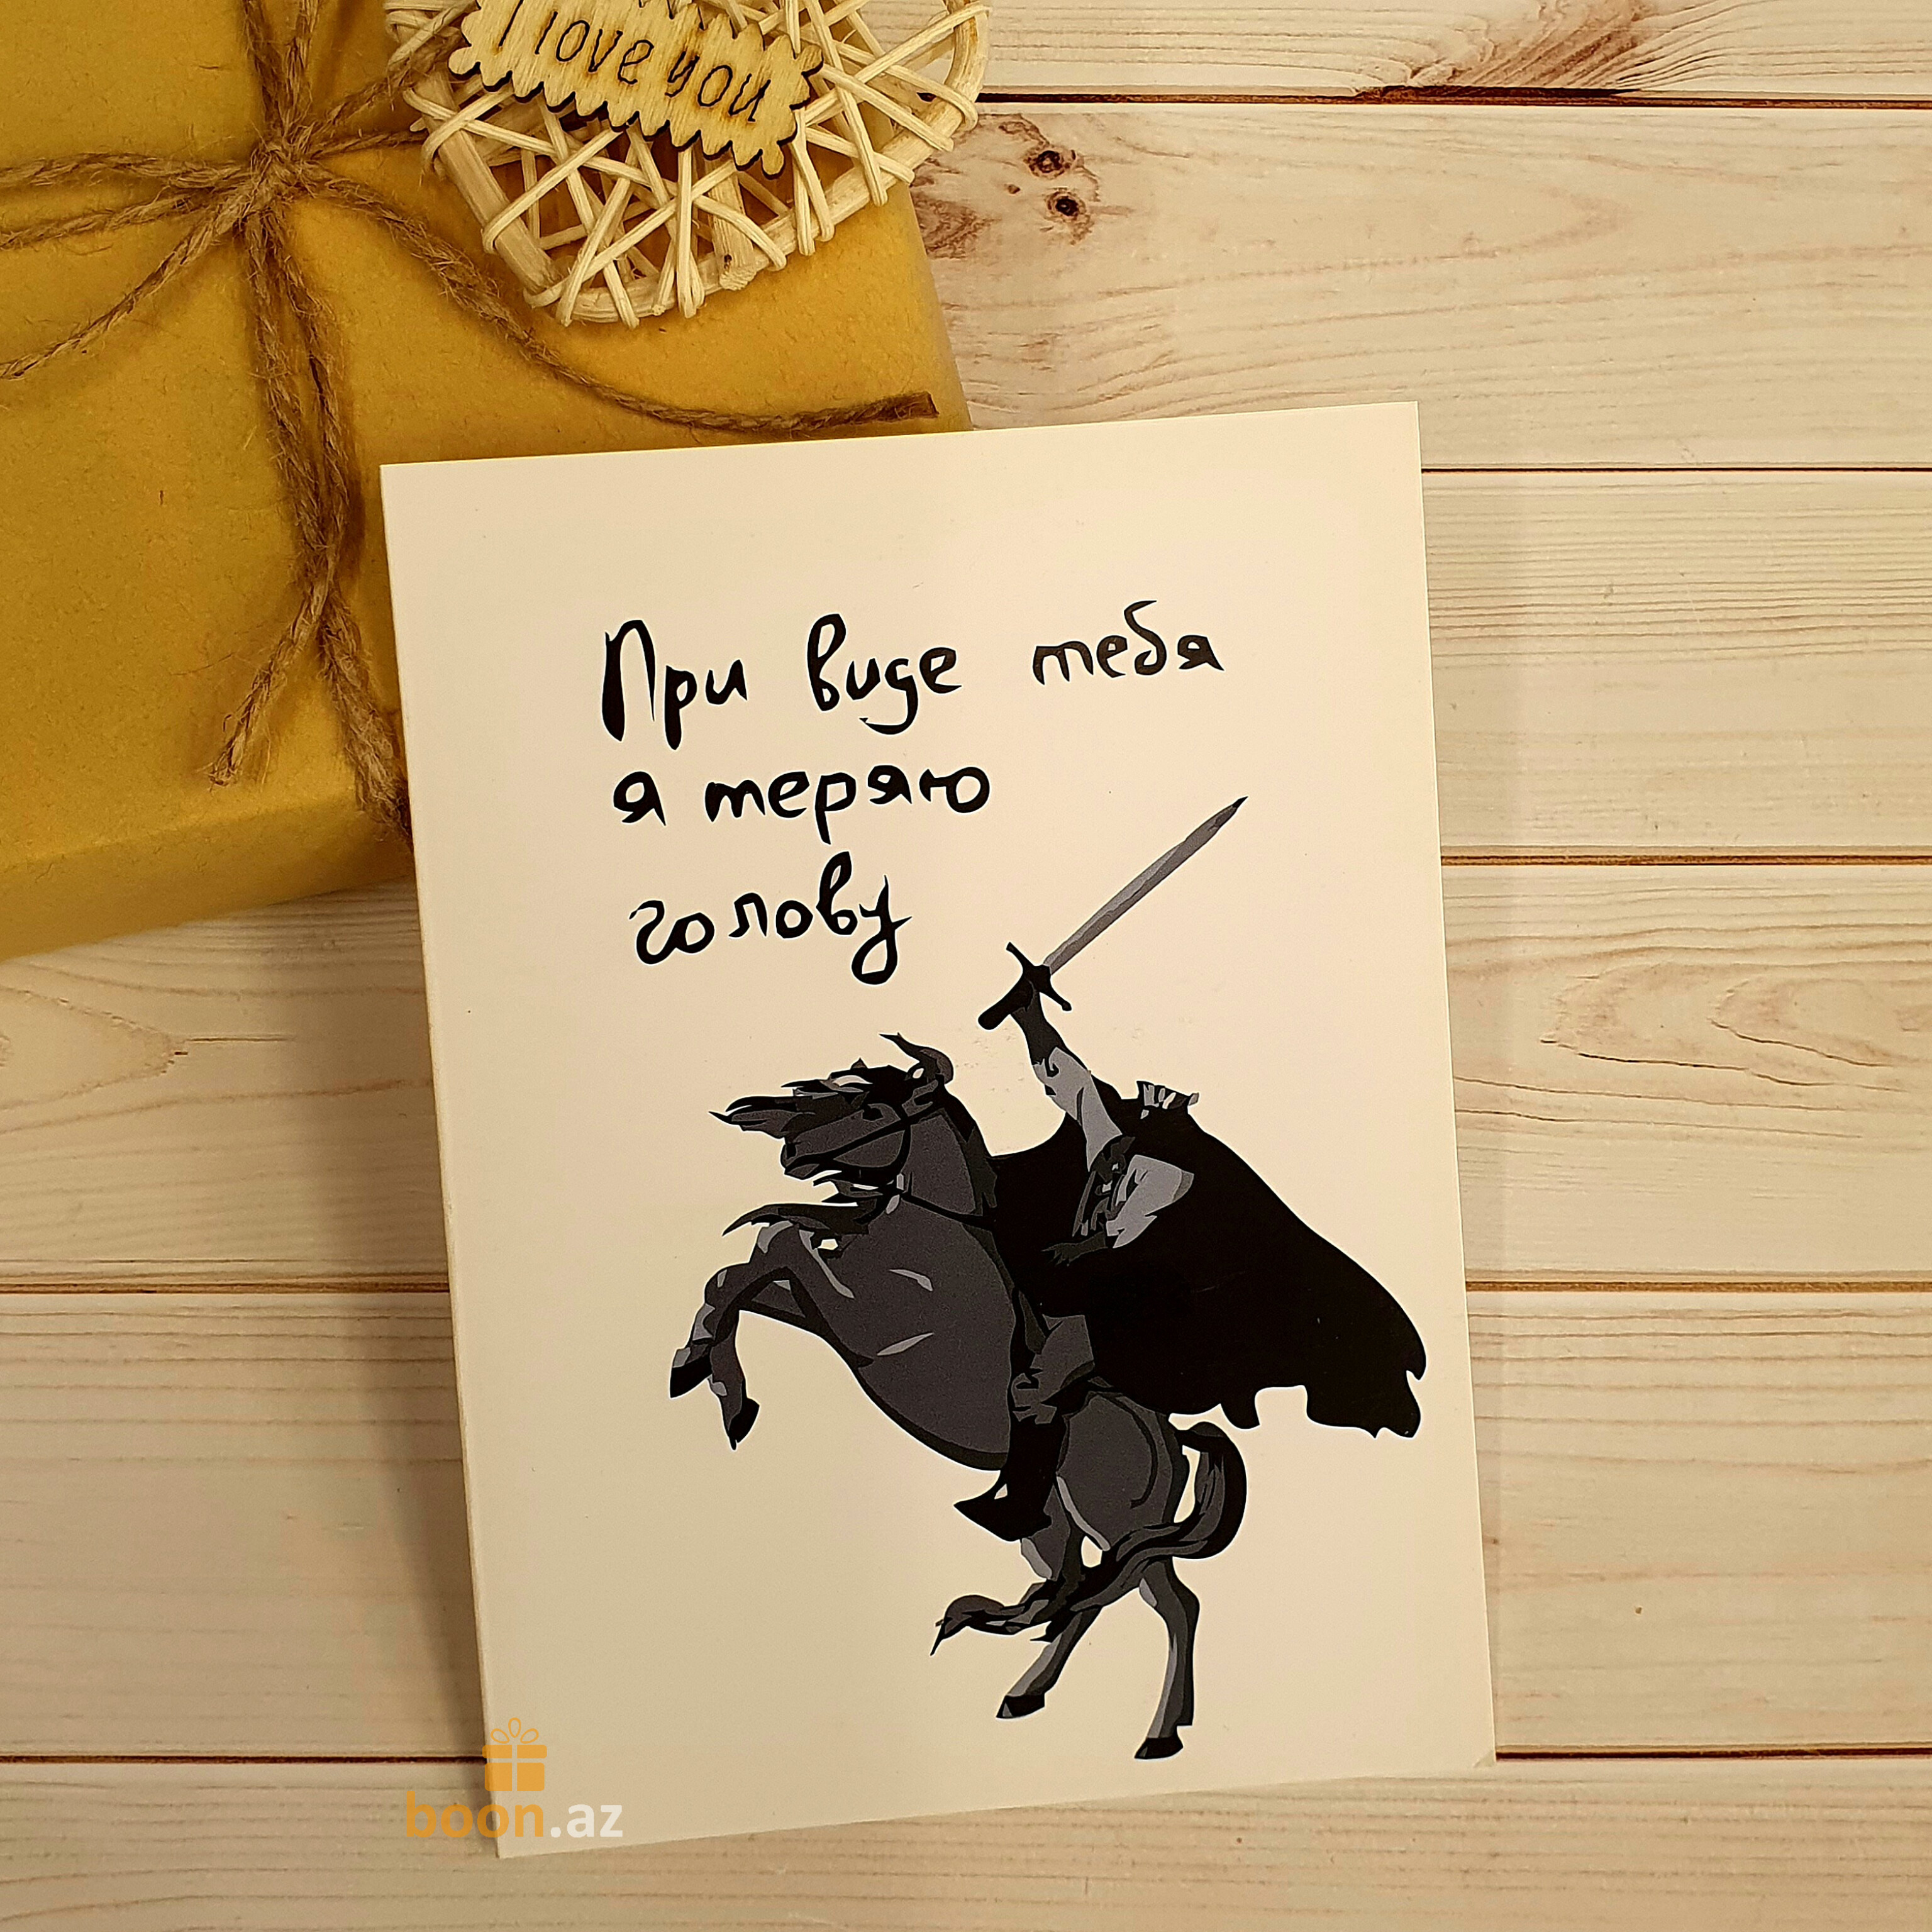 I love you
При виде тебя
я теряю
голову
boon.az